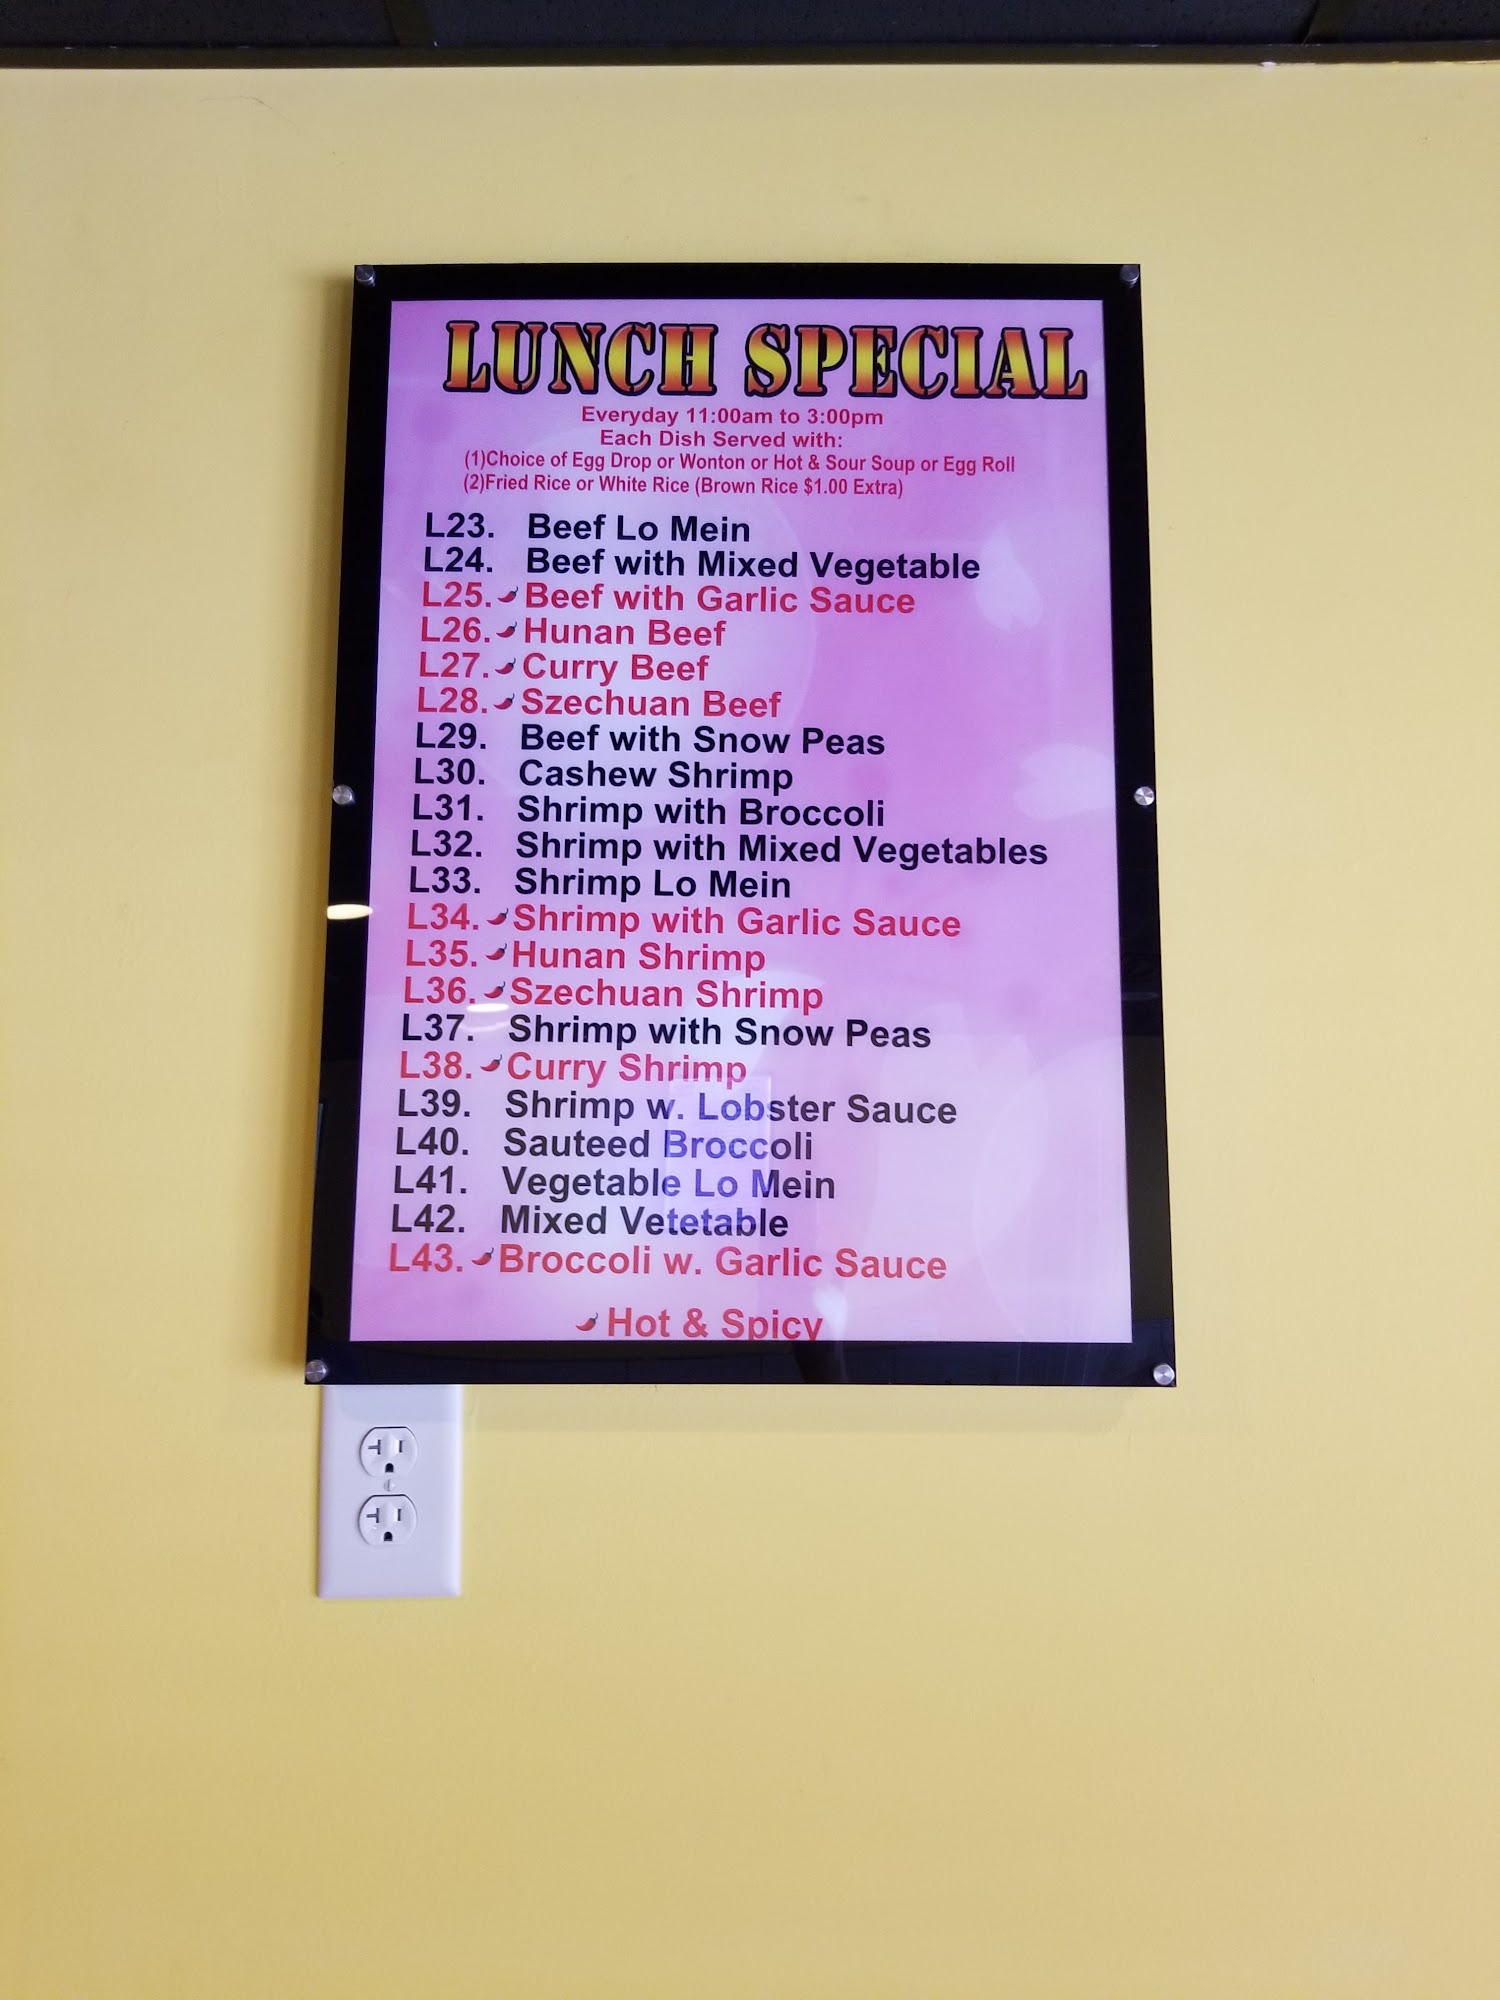 LUNCH SPECIAL
Everyday 11:00am to 3:00pm
Each Dish Served with:
(1)Choice of Egg Drop or Wonton or Hot & Sour Soup or Egg Roll
(2)Fried Rice or White Rice (Brown Rice $1.00 Extra)
L23. Beef Lo Mein
L24. Beef with Mixed Vegetable
L25. Beef with Garlic Sauce
L26. Hunan Beef
L27. Curry Beef
L28. Szechuan Beef
L29. Beef with Snow Peas
L30. Cashew Shrimp
L31. Shrimp with Broccoli
L32. Shrimp with Mixed Vegetables
L33. Shrimp Lo Mein
L34. Shrimp with Garlic Sauce
L35. Hunan Shrimp
L36. Szechuan Shrimp
L37. Shrimp with Snow Peas
L38. Curry Shrimp
L39. Shrimp w. Lobster Sauce
L40. Sauteed Broccoli
L41. Vegetable Lo Mein
L42. Mixed Vetetable
L43. Broccoli w. Garlic Sauce
Hot & Spicy